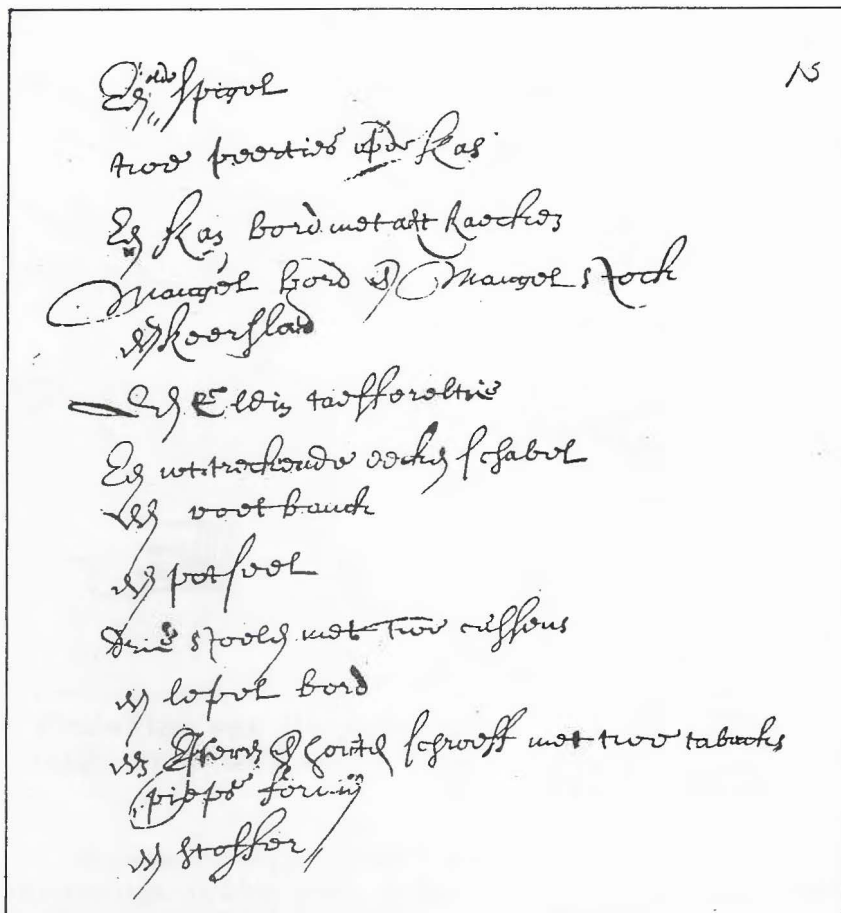 15
Een olde spigel
twe peerties op de kas
Een kas bord met acht kaecken
Mangel bord en Mangel stock
een keerslad
Een taeffereltie
Een uttreckende eecken schabel
een voet banck
een potseel
drie stoelen met twe cussens
een lepel bord
een iseren en houten schroeff met twe tabacks
pieps
een stoffer